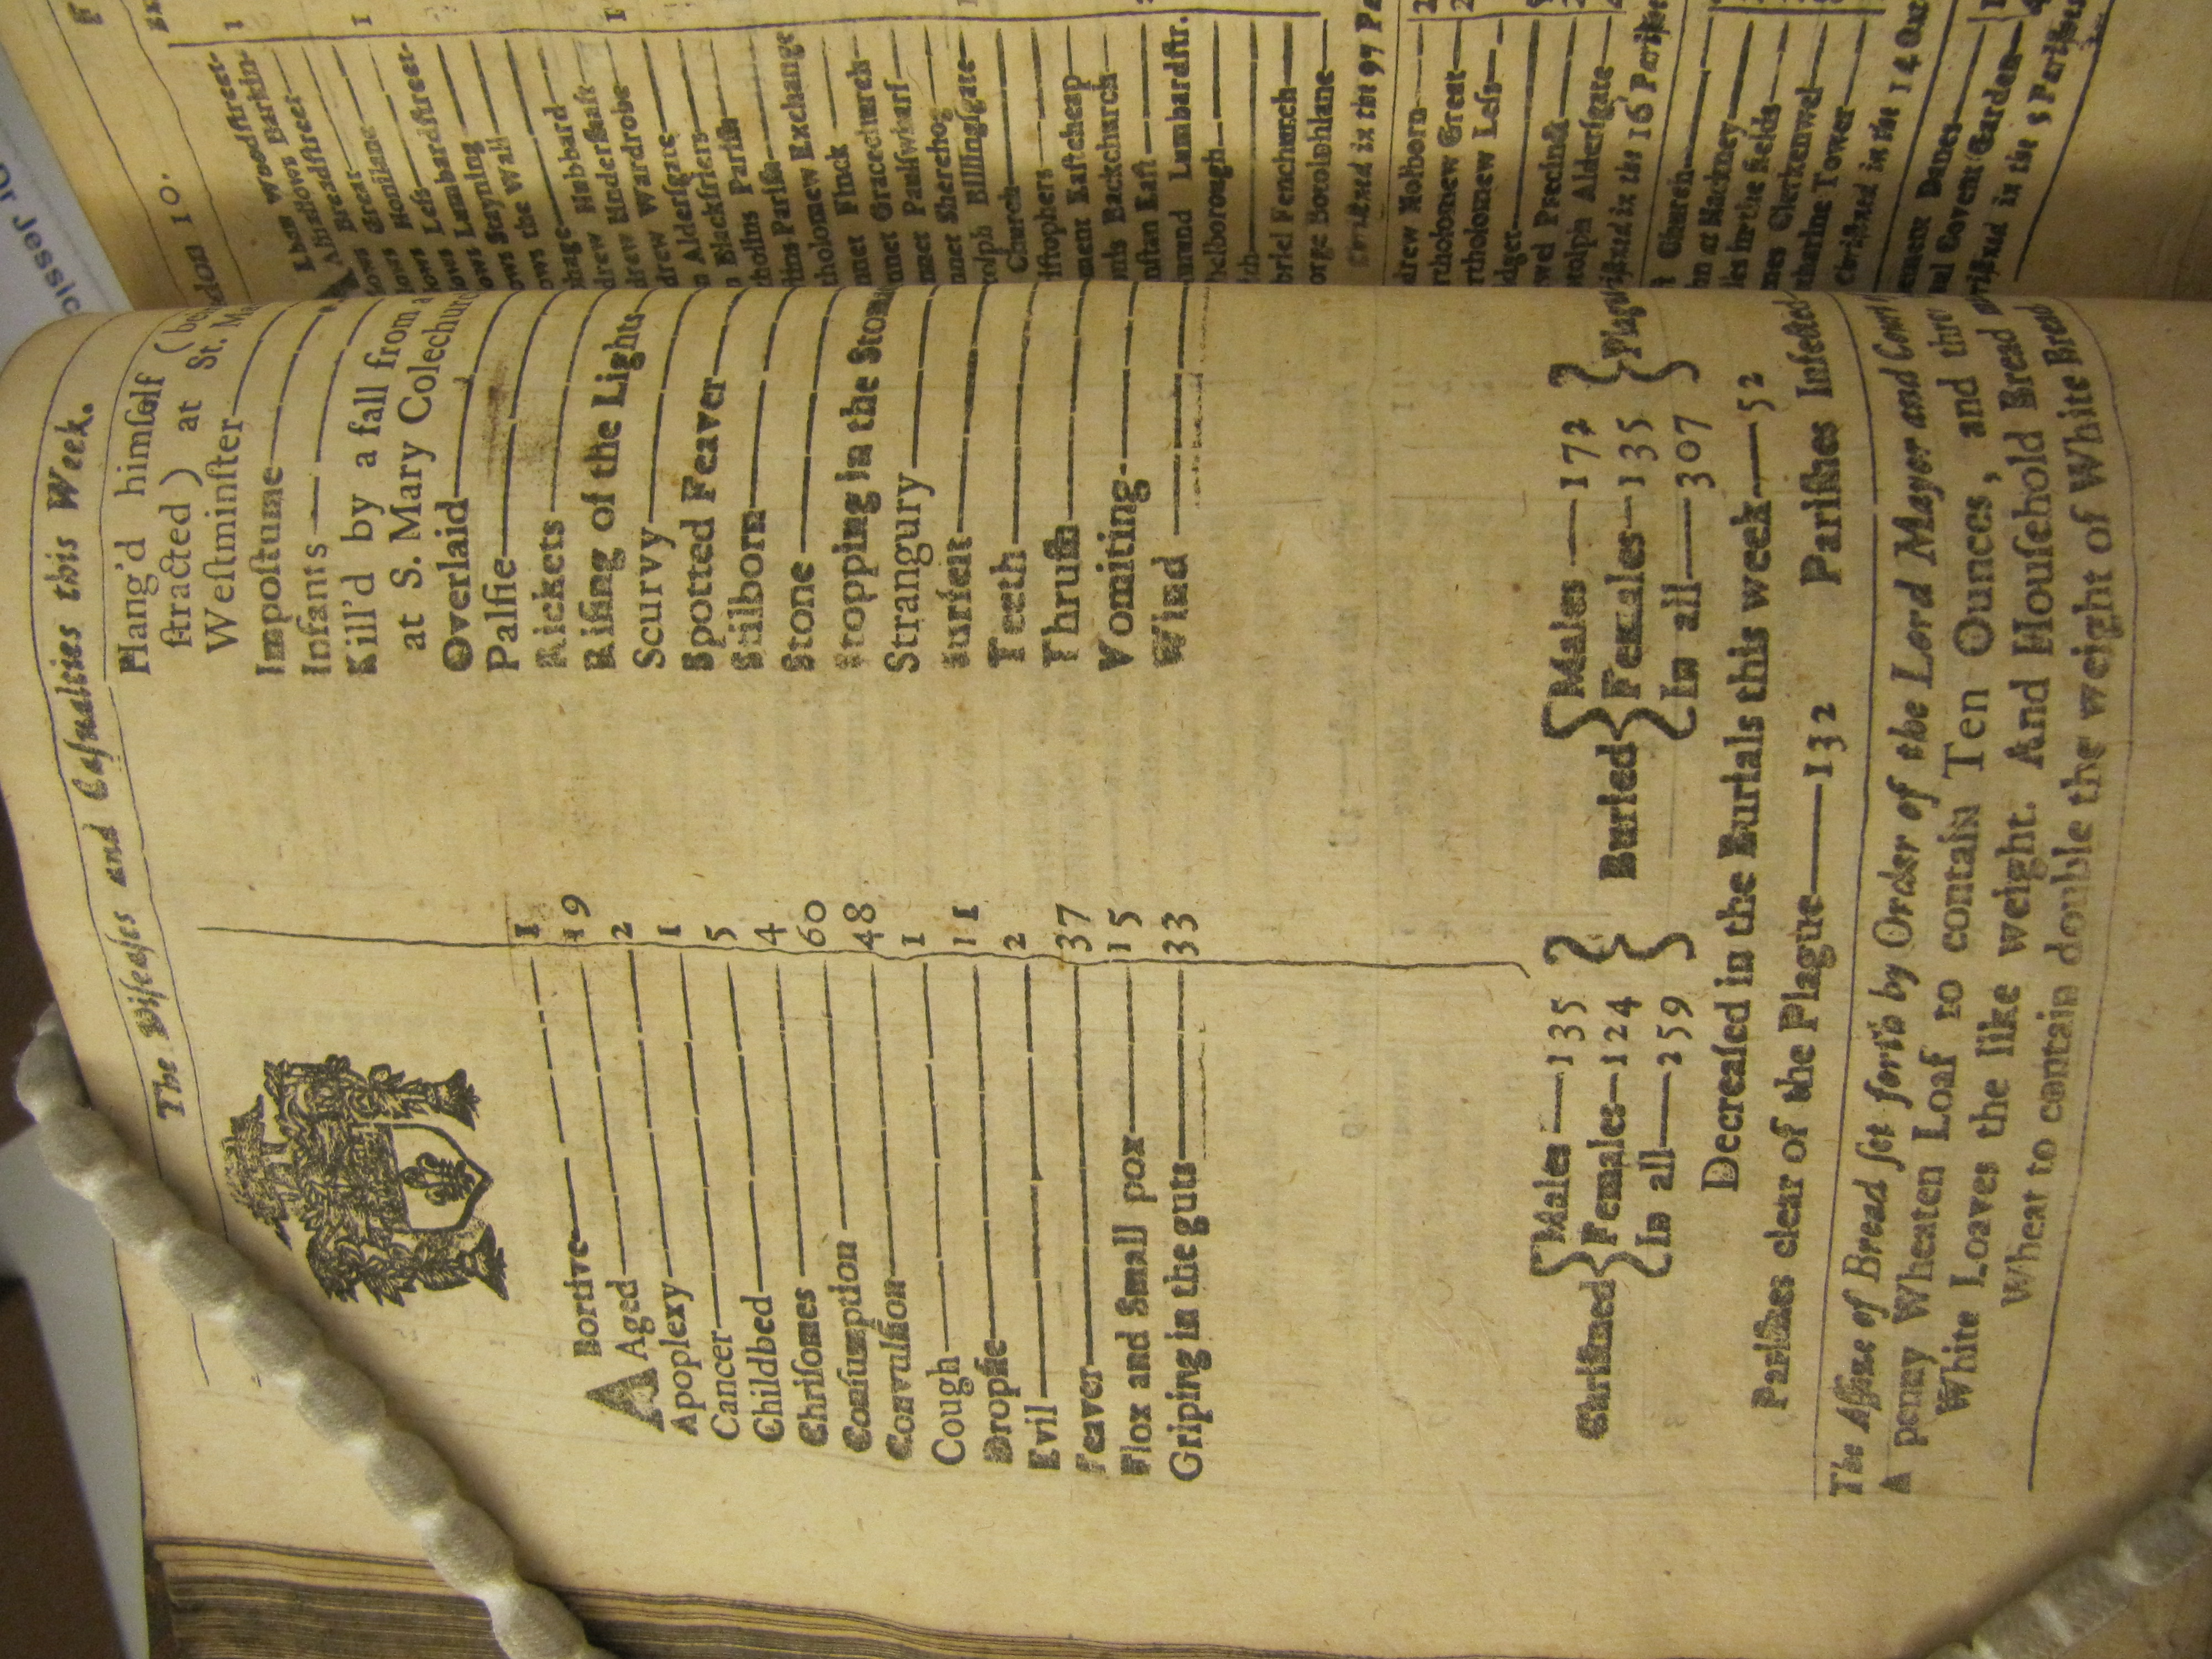 The Diſeaſes and Caſualties this Week.
ABortive 1
Aged 19
Apoplexy 2
Cancer 1
Childbed 5
Chriſomes 4
Conſumption 60
Convulſion 48
Cough 1
Dropſie 11
Evil 2
Feaver 37
Flox and Small pox 15
Griping in the guts 33
Hang'd himſelf
ſtracted) at St.
Weſtminſter
Impoſtume
Infants
Kill'd by a fall from
at S. Mary Colechurc
Overlaid
Palſie
Rickets
Riſing of the Lights
Scurvy
Spotted Feaver
Stilborn
Stone
Stopping in the Stom
Strangury
Surfeit
Teeth
Thruſh
Vomiting
Wind
Chriſtned { Males 135 Females 124 In all 259 }
Buried { Males 172 Females 135 In all 307 } Plague
Decreaſed in the Burials this week 52
Pariſhes clear of the Plague 132 Pariſhes Infected
The Aſſize of Bread ſet forth by Order of the Lord Mayor and Court
A penny Wheaten Loaf to contain Ten Ounces, and three
White Loaves the like weight. And Houſehold Bread
Wheat to contain double the weight of White Bread
don 10.
Lban Woodſtreet 1
Alhallows Barkin
Breadſtreet
ows Great 1
ows Honilane
ows Leſs
ows Lombardſtreet
ows Stayning
ows the Wall
hage
drew Hubbard
drew Underſhaft 1
drew Wardrobe
n Alderſgate
n Blackfriers
tholins Pariſh
tholomew Exchange
nnet Finck
nnet Gracechurch
nnet Paulſwharf
nnet Sherehog
tolph Billingſgate
Church
iſtophers
ment Eaſtcheap
nis Backchurch
nſtan Eaſt
mund Lumbardſtr.
helborough
th
briel Fenchurch
orge Botolphlane
Chriſtned in the 97 Pa
drew Holborn
rtholomew Great
rtholomew Leſs
idget
wel Precinct
otolph Alderſgate
riſtned in the 16 Pariſhes
t Church
hn at Hackney
les in the fields
mes Clerkenwel
atharine Tower
Chriſtned in the 14 Out
ement Danes
ul Covent Garden
hriſtned in the 5 Pariſhes
Dr Jessic